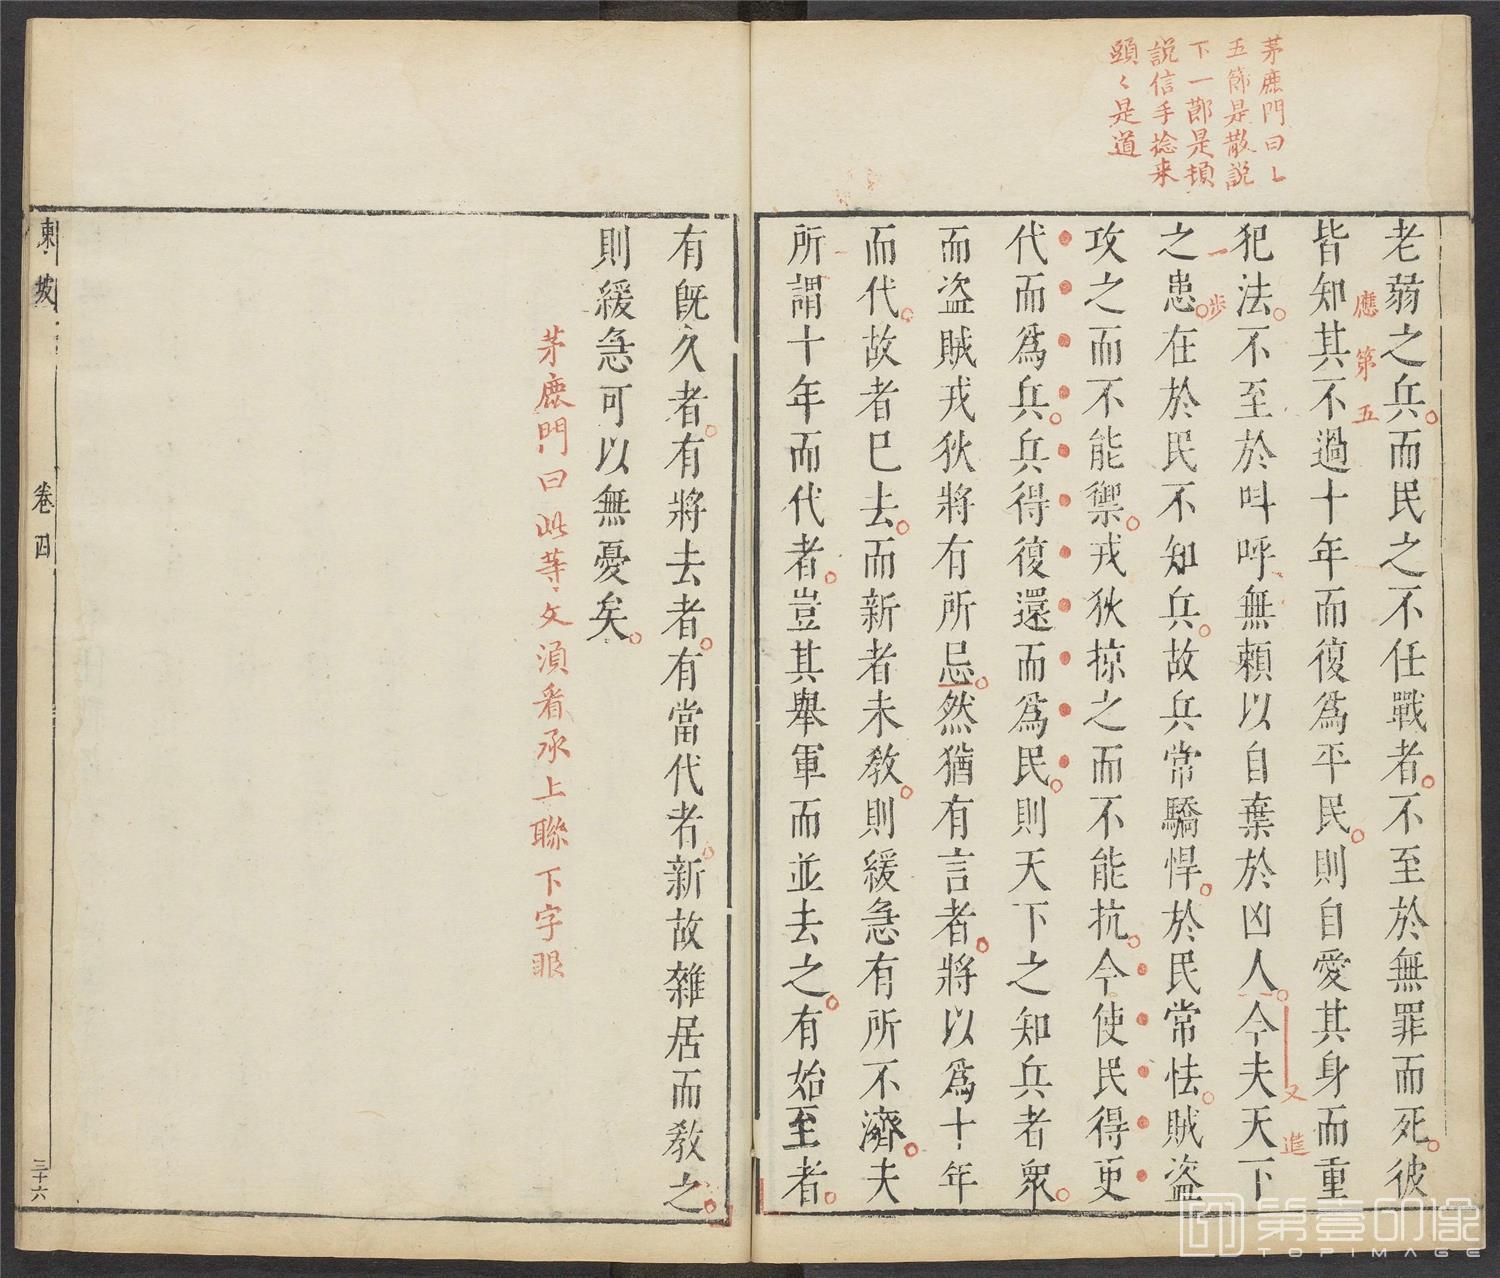 茅鹿門曰上
五節是散說
下一節是頓
說信手捻来
頭〻是道
老弱之兵而民之不任戰者不至於無罪而死彼
皆知其不過十年而復爲平民則自愛其身而重
應第五
犯法不至於呌呼無頼以自棄於凶人今夫天下
又進
一步
之患在於民不知兵故兵常驕悍於民常怯賊盜
攻之而不能禦戎狄掠之而不能抗今使民得更
代而爲兵兵得復還而爲民則天下之知兵者衆
而盜賊戎狄將有所忌然猶有言者將以爲十年
而代故者巳去而新者未敎則緩急有所不濟夫
所謂十年而代者豈其舉軍而並去之有始至者
有旣久者有將去者有當代者新故雜居而敎之
則緩急可以無憂矣
茅鹿門曰此等文湏看承上聯下字眼
東坡
卷四
三十六
第壹印像
TOPIMAGE